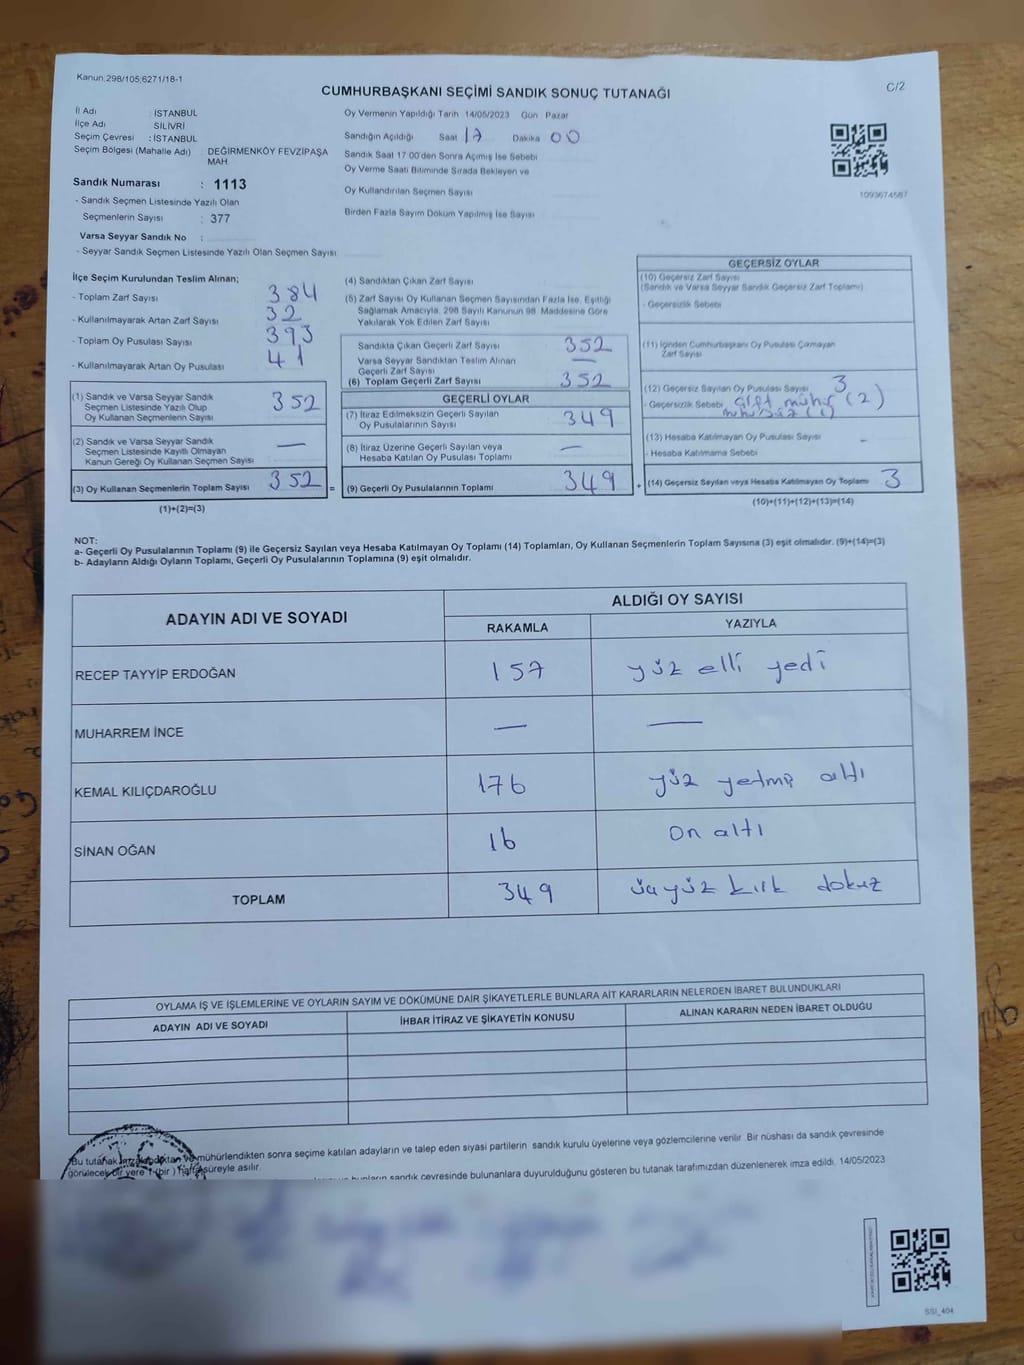 Kanun;298/105;6271/18-1
C/2
CUMHURBAŞKANI SEÇİMİ SANDIK SONUÇ TUTANAĞI
İl Adı : İSTANBUL
İlçe Adı : SİLİVRİ
Seçim Çevresi : İSTANBUL
Seçim Bölgesi (Mahalle Adı) : DEĞİRMENKÖY FEVZİPAŞA
MAH.
Sandık Numarası : 1113
- Sandık Seçmen Listesinde Yazılı Olan
Seçmenlerin Sayısı : 377
Varsa Seyyar Sandık No :
- Seyyar Sandık Seçmen Listesinde Yazılı Olan Seçmen Sayısı
Oy Vermenin Yapıldığı Tarih 14/05/2023 Gün Pazar
Sandığın Açıldığı Saat 17 Dakika 00
Sandık Saat 17:00'den Sonra Açımış İse Sebebi
Oy Verme Saati Bitiminde Sırada Bekleyen ve
Oy Kullandırılan Seçmen Sayısı
Birden Fazla Sayım Döküm Yapılmış İse Sayısı
1093674587
İlçe Seçim Kurulundan Teslim Alınan;
- Toplam Zarf Sayısı 384
- Kullanılmayarak Artan Zarf Sayısı 32
- Toplam Oy Pusulası Sayısı 393
- Kullanılmayarak Artan Oy Pusulası 41
(1) Sandık ve Varsa Seyyar Sandık
Seçmen Listesinde Yazılı Olup
Oy Kullanan Seçmenlerin Sayısı 352
(2) Sandık ve Varsa Seyyar Sandık
Seçmen Listesinde Kayıtlı Olmayan
Kanun Gereği Oy Kullanan Seçmen Sayısı —
(3) Oy Kullanan Seçmenlerin Toplam Sayısı 352 =
(1)+(2)=(3)
(4) Sandıktan Çıkan Zarf Sayısı
(5) Zarf Sayısı Oy Kullanan Seçmen Sayısından Fazla İse, Eşitliği
Sağlamak Amacıyla, 298 Sayılı Kanunun 98. Maddesine Göre
Yakılarak Yok Edilen Zarf Sayısı
Sandıkta Çıkan Geçerli Zarf Sayısı 352
Varsa Seyyar Sandıktan Teslim Alınan
Geçerli Zarf Sayısı —
(6) Toplam Geçerli Zarf Sayısı 352
GEÇERLİ OYLAR
(7) İtiraz Edilmeksizin Geçerli Sayılan
Oy Pusulalarının Sayısı 349
(8) İtiraz Üzerine Geçerli Sayılan veya
Hesaba Katılan Oy Pusulası Toplamı —
(9) Geçerli Oy Pusulalarının Toplamı 349 +
GEÇERSİZ OYLAR
(10) Geçersiz Zarf Sayısı
(Sandık ve Varsa Seyyar Sandık Geçersiz Zarf Toplamı)
- Geçersizlik Sebebi
(11) İçinden Cumhurbaşkanı Oy Pusulası Çıkmayan
Zarf Sayısı
(12) Geçersiz Sayılan Oy Pusulası Sayısı 3
- Geçersizlik Sebebi Çift mühür (2)
mühürsüz (1)
(13) Hesaba Katılmayan Oy Pusulası Sayısı -
- Hesaba Katılmama Sebebi
(14) Geçersiz Sayılan veya Hesaba Katılmayan Oy Toplamı 3
(10)+(11)+(12)+(13)=(14)
NOT:
a- Geçerli Oy Pusulalarının Toplamı (9) ile Geçersiz Sayılan veya Hesaba Katılmayan Oy Toplamı (14) Toplamları, Oy Kullanan Seçmenlerin Toplam Sayısına (3) eşit olmalıdır. (9)+(14)=(3)
b- Adayların Aldığı Oyların Toplamı, Geçerli Oy Pusulalarının Toplamına (9) eşit olmalıdır.
ADAYIN ADI VE SOYADI ALDIĞI OY SAYISI
RAKAMLA YAZIYLA
RECEP TAYYİP ERDOĞAN 157 yüz elli yedi
MUHARREM İNCE — —
KEMAL KILIÇDAROĞLU 176 yüz yetmiş altı
SİNAN OĞAN 16 on altı
TOPLAM 349 üçyüz kırk dokuz
OYLAMA İŞ VE İŞLEMLERİNE VE OYLARIN SAYIM VE DÖKÜMÜNE DAİR ŞİKAYETLERLE BUNLARA AİT KARARLARIN NELERDEN İBARET BULUNDUKLARI
ADAYIN ADI VE SOYADI İHBAR İTİRAZ VE ŞİKAYETİN KONUSU ALINAN KARARIN NEDEN İBARET OLDUĞU
Bu tutanak imzalandıktan ve mühürlendikten sonra seçime katılan adayların ve talep eden siyasi partilerin sandık kurulu üyelerine veya gözlemcilerine verilir. Bir nüshası da sandık çevresinde
görülecek bir yere 1 (bir) hafta süreyle asılır.
bunların sandık çevresinde bulunanlara duyurulduğunu gösteren bu tutanak tarafımızdan düzenlenerek imza edildi. 14/05/2023
SSI_404